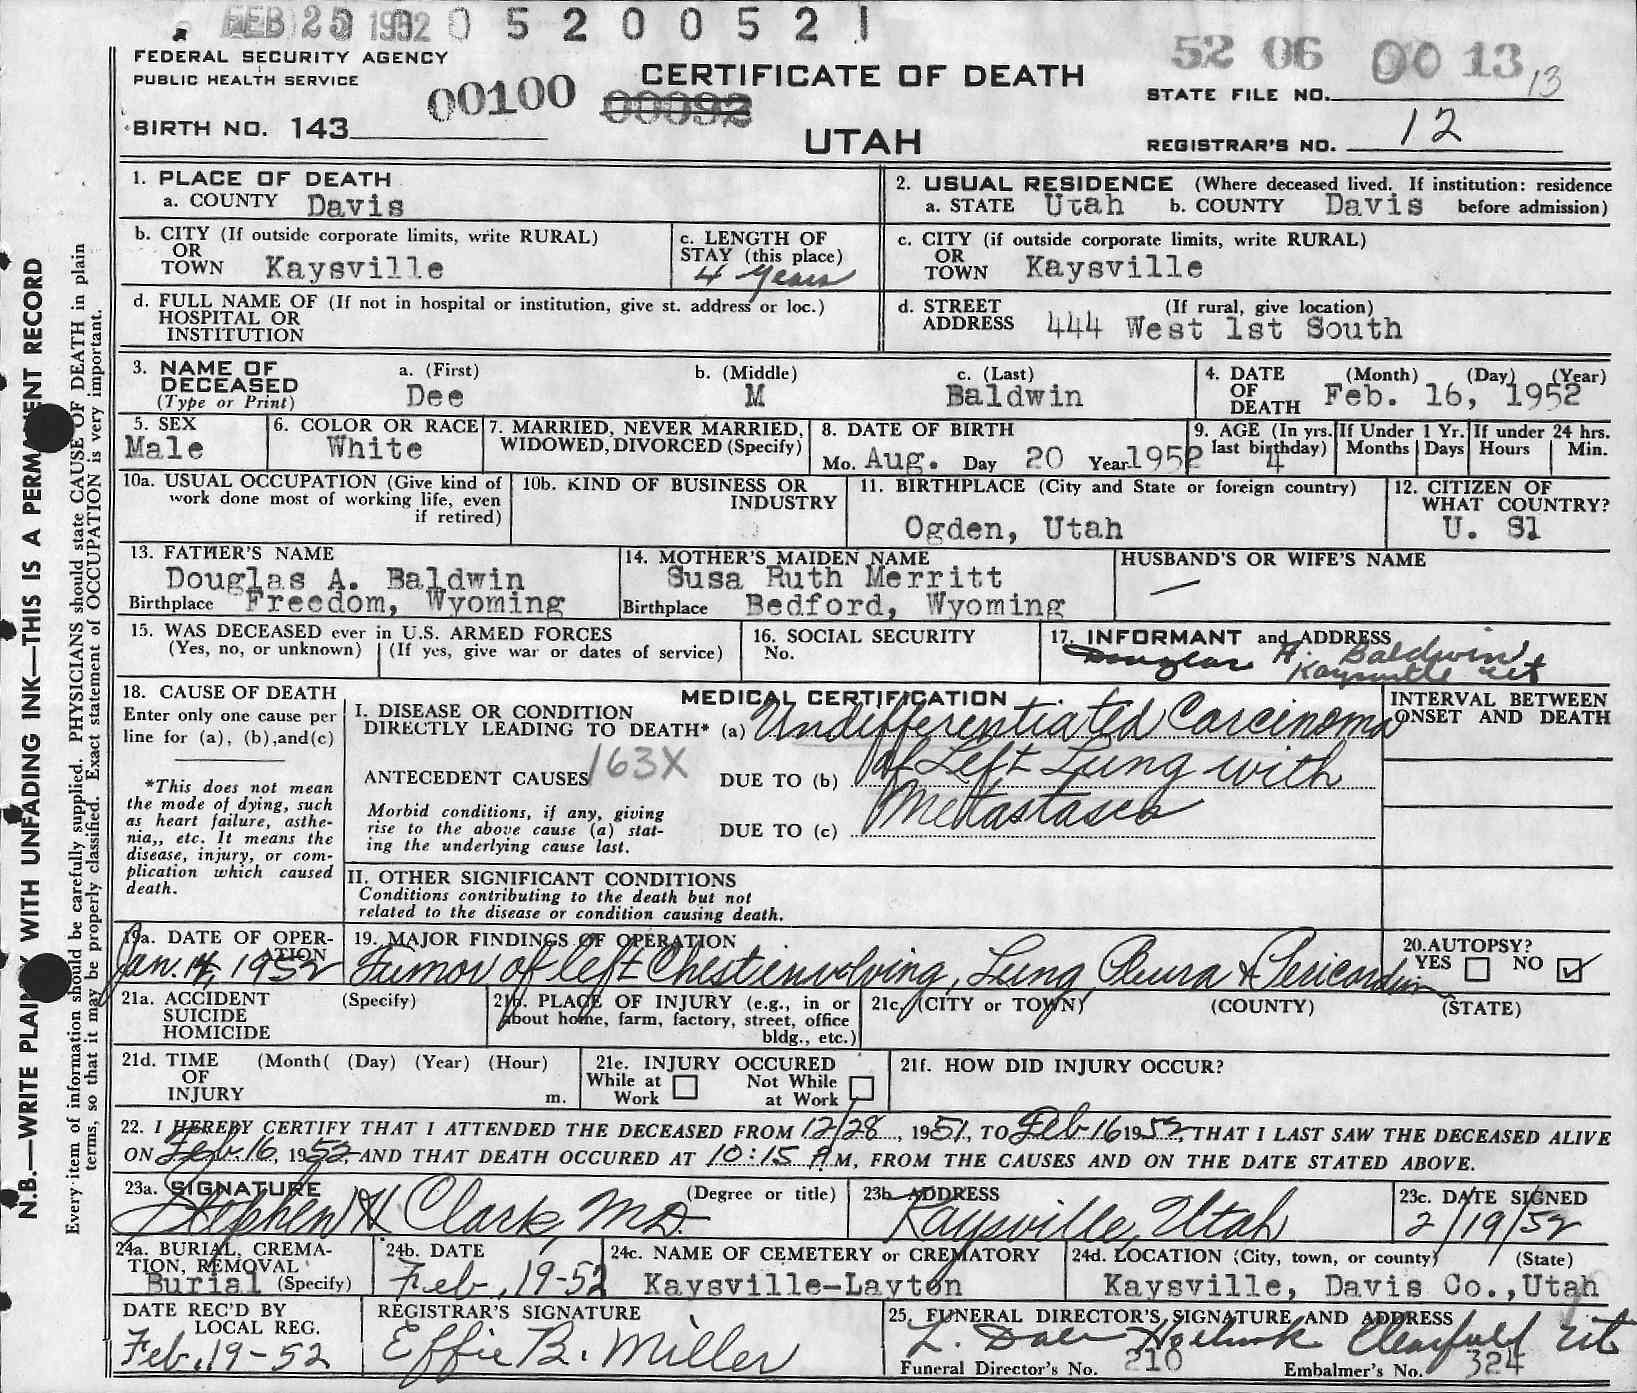 FEB 25 1952 0 5 2 0 0 5 2 1
FEDERAL SECURITY AGENCY
PUBLIC HEALTH SERVICE
BIRTH NO. 143
00100 00092
CERTIFICATE OF DEATH
UTAH
52 06 00 13
STATE FILE NO. 13
REGISTRAR'S NO. 12
N.B.—WRITE PLAINLY WITH UNFADING INK—THIS IS A PERMANENT RECORD
Every item of information should be carefully supplied. PHYSICIANS should state CAUSE OF DEATH in plain
terms, so that it may be properly classified. Exact statement of OCCUPATION is very important.
1. PLACE OF DEATH
a. COUNTY Davis
2. USUAL RESIDENCE (Where deceased lived. If institution: residence
a. STATE Utah b. COUNTY Davis before admission)
b. CITY (If outside corporate limits, write RURAL)
OR
TOWN Kaysville
c. LENGTH OF
STAY (this place)
4 years
c. CITY (if outside corporate limits, write RURAL)
OR
TOWN Kaysville
d. FULL NAME OF (If not in hospital or institution, give st. address or loc.)
HOSPITAL OR
INSTITUTION
d. STREET (If rural, give location)
ADDRESS 444 West 1st South
3. NAME OF
DECEASED
(Type or Print)
a. (First) b. (Middle) c. (Last)
Dee M Baldwin
4. DATE (Month) (Day) (Year)
OF
DEATH Feb. 16, 1952
5. SEX
Male
6. COLOR OR RACE
White
7. MARRIED, NEVER MARRIED,
WIDOWED, DIVORCED (Specify)
8. DATE OF BIRTH
Mo. Aug. Day 20 Year 1952
9. AGE (In yrs.
last birthday)
4
If Under 1 Yr.
Months Days
If under 24 hrs.
Hours Min.
10a. USUAL OCCUPATION (Give kind of
work done most of working life, even
if retired)
10b. KIND OF BUSINESS OR
INDUSTRY
11. BIRTHPLACE (City and State or foreign country)
Ogden, Utah
12. CITIZEN OF
WHAT COUNTRY?
U. Sl
13. FATHER'S NAME
Douglas A. Baldwin
Birthplace Freedom, Wyoming
14. MOTHER'S MAIDEN NAME
Susa Ruth Merritt
Birthplace Bedford, Wyoming
HUSBAND'S OR WIFE'S NAME
—
15. WAS DECEASED ever in U.S. ARMED FORCES
(Yes, no, or unknown) (If yes, give war or dates of service)
16. SOCIAL SECURITY
No.
17. INFORMANT and ADDRESS
Douglas A. Baldwin
Kaysville Ut
18. CAUSE OF DEATH
Enter only one cause per
line for (a), (b),and(c)
*This does not mean
the mode of dying, such
as heart failure, asthe-
nia,, etc. It means the
disease, injury, or com-
plication which caused
death.
MEDICAL CERTIFICATION
I. DISEASE OR CONDITION
DIRECTLY LEADING TO DEATH* (a) Undifferentiated Carcinoma
ANTECEDENT CAUSES 163X DUE TO (b) of Left Lung with
Metastases
Morbid conditions, if any, giving
rise to the above cause (a) stat-
ing the underlying cause last.
DUE TO (c)
INTERVAL BETWEEN
ONSET AND DEATH
II. OTHER SIGNIFICANT CONDITIONS
Conditions contributing to the death but not
related to the disease or condition causing death.
19a. DATE OF OPER-
ATION
Jan. 14, 1952
19. MAJOR FINDINGS OF OPERATION
Tumor of left Chest involving, Lung Pleura & Pericardium
20.AUTOPSY?
YES NO ✓
21a. ACCIDENT (Specify)
SUICIDE
HOMICIDE
21b. PLACE OF INJURY (e.g., in or
about home, farm, factory, street, office
bldg., etc.)
21c. (CITY or TOWN) (COUNTY) (STATE)
21d. TIME (Month( (Day) (Year) (Hour)
OF
INJURY m.
21e. INJURY OCCURED
While at Not While
Work at Work
21f. HOW DID INJURY OCCUR?
22. I HEREBY CERTIFY THAT I ATTENDED THE DECEASED FROM 12/28, 1951, TO Feb 16 1952, THAT I LAST SAW THE DECEASED ALIVE
ON Feb. 16, 1952, AND THAT DEATH OCCURED AT 10:15 AM, FROM THE CAUSES AND ON THE DATE STATED ABOVE.
23a. SIGNATURE (Degree or title)
Stephen H Clark, M.D.
23b. ADDRESS
Kaysville, Utah
23c. DATE SIGNED
2/19/52
24a. BURIAL, CREMA-
TION, REMOVAL
Burial (Specify)
24b. DATE
Feb, 19-52
24c. NAME OF CEMETERY or CREMATORY
Kaysville-Layton
24d. LOCATION (City, town, or county) (State)
Kaysville, Davis Co.,Utah
DATE REC'D BY
LOCAL REG.
Feb. 19-52
REGISTRAR'S SIGNATURE
Effie B. Miller
25. FUNERAL DIRECTOR'S SIGNATURE AND ADDRESS
L. Dale Clearfield Ut
Funeral Director's No. 210 Embalmer's No. 324